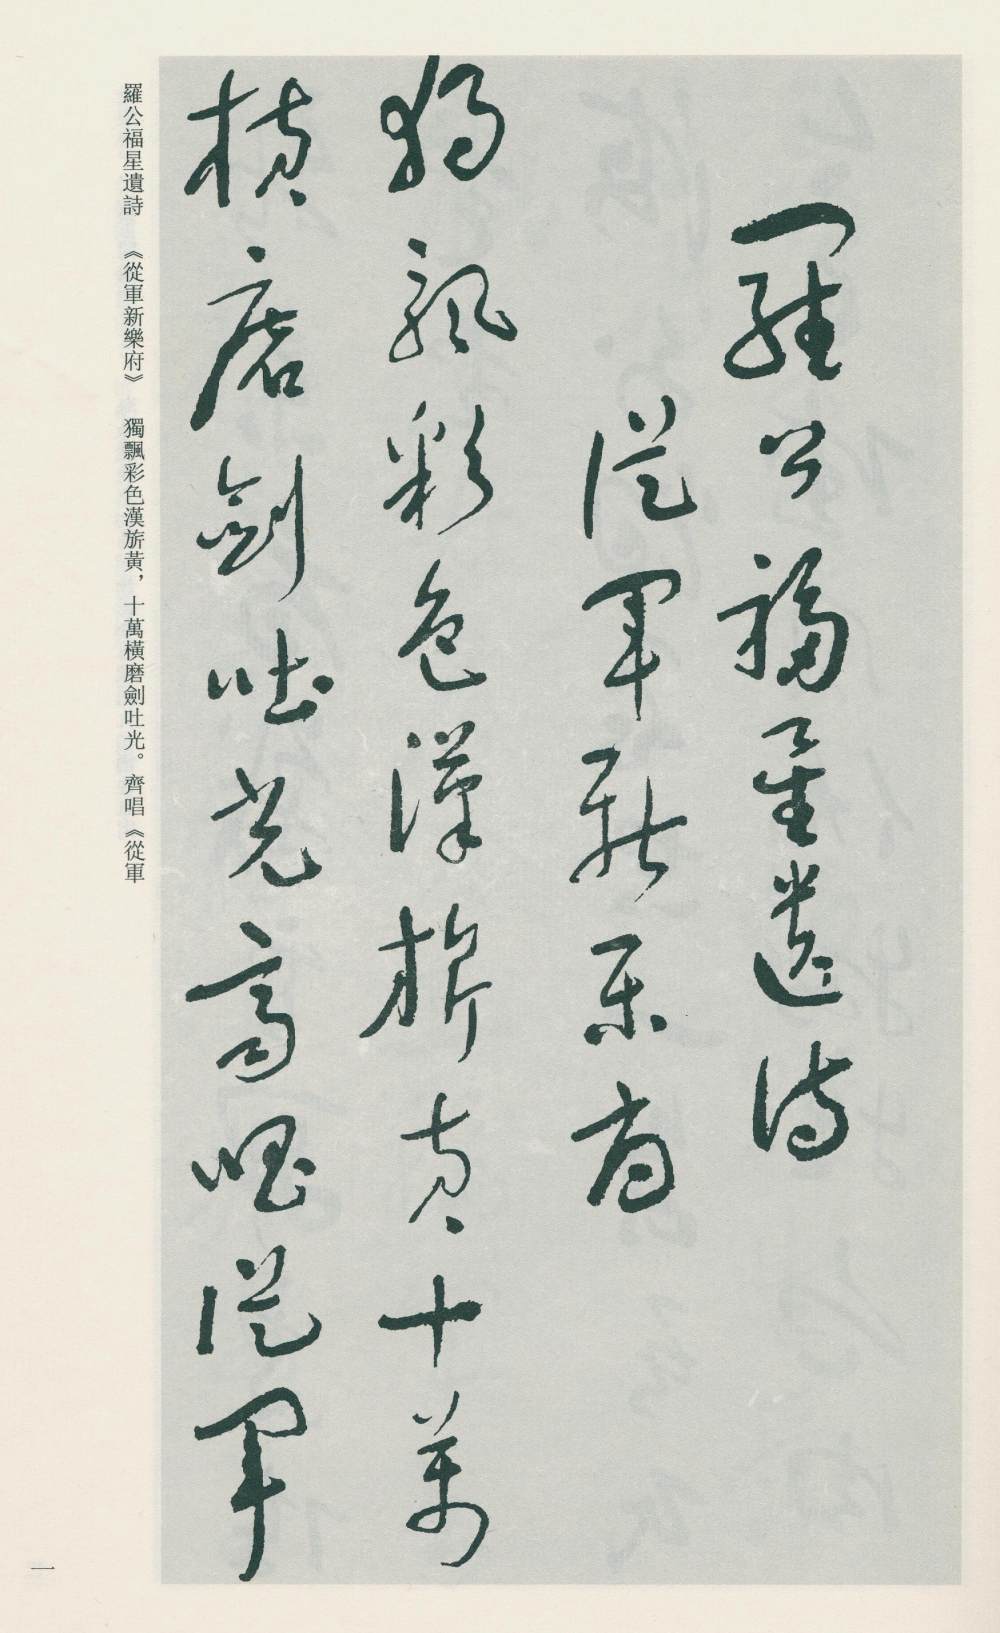 羅公福星遺詩
從軍新樂府
獨飄彩色漢旂黃十萬
橫磨劍吐光齊唱從軍
羅公福星遺詩 《從軍新樂府》 獨飄彩色漢旂黃，十萬橫磨劍吐光。齊唱《從軍
一